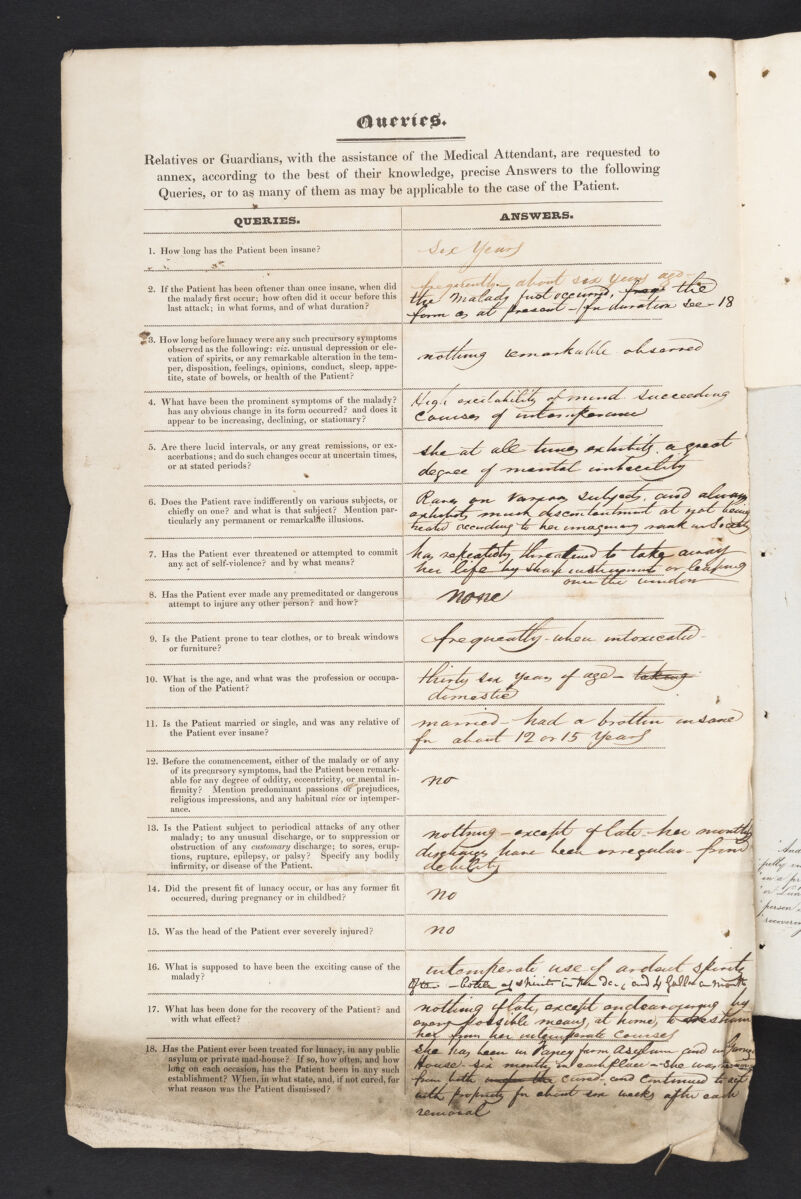 Queries.
Relatives or Guardians, with the assistance of the Medical Attendant, are requested to
annex, according to the best of their knowledge, precise Answers to the following
Queries, or to as many of them as may be applicable to the case of the Patient.
QUERIES.
ANSWERS.
1. How long has the Patient been insane?
Six Years
2. If the Patient has been oftener than once insane, when did
the malady first occur; how often did it occur before this
last attack; in what forms, and of what duration?
frequently - about six years ago -
the malady first occurred, the
form as at present - for duration see - 18
3. How long before lunacy were any such precursory symptoms
observed as the following: viz. unusual depression or ele-
vation of spirits, or any remarkable alteration in the tem-
per, disposition, feelings, opinions, conduct, sleep, appe-
tite, state of bowels, or health of the Patient?
nothing remarkable observed
4. What have been the prominent symptoms of the malady?
has any obvious change in its form occurred? and does it
appear to be increasing, declining, or stationary?
High excitability of mind succeeding
Courses of intemperance
5. Are there lucid intervals, or any great remissions, or ex-
acerbations; and do such changes occur at uncertain times,
or at stated periods?
she at all times exhibits a great
degree of mental imbecility
6. Does the Patient rave indifferently on various subjects, or
chiefly on one? and what is that subject? Mention par-
ticularly any permanent or remarkable illusions.
Raves on various subjects, and always
exhibits much discontentment at not being
treated according to her imaginary rank in Society
7. Has the Patient ever threatened or attempted to commit
any act of self-violence? and by what means?
has repeatedly threatened to take away
her life by sharp instruments or leaping
over the window
8. Has the Patient ever made any premeditated or dangerous
attempt to injure any other person? and how?
none
9. Is the Patient prone to tear clothes, or to break windows
or furniture?
frequently - when intoxicated -
10. What is the age, and what was the profession or occupa-
tion of the Patient?
thirty six years of age - taking
domestic
11. Is the Patient married or single, and was any relative of
the Patient ever insane?
married - had a brother insane
for about 12 or 15 years
12. Before the commencement, either of the malady or of any
of its precursory symptoms, had the Patient been remark-
able for any degree of oddity, eccentricity, or mental in-
firmity? Mention predominant passions or prejudices,
religious impressions, and any habitual vice or intemper-
ance.
no
13. Is the Patient subject to periodical attacks of any other
malady; to any unusual discharge, or to suppression or
obstruction of any customary discharge; to sores, erup-
tions, rupture, epilepsy, or palsy? Specify any bodily
infirmity, or disease of the Patient.
nothing - except of late - her monthly
discharges have been irregular - from
debility
14. Did the present fit of lunacy occur, or has any former fit
occurred, during pregnancy or in childbed?
no
15. Was the head of the Patient ever severely injured?
no
16. What is supposed to have been the exciting cause of the
malady?
intemperate use of ardent spirits
Often - bottle of spirits in the day and
17. What has been done for the recovery of the Patient? and
with what effect?
nothing of late, except endeavouring by
every possible means, at home, to restrain
her from her intemperate Courses
18. Has the Patient ever been treated for lunacy, in any public
asylum or private mad-house? If so, how often, and how
long on each occasion, has the Patient been in any such
establishment? When, in what state, and, if not cured, for
what reason was the Patient dismissed?
She has been in farm Asylum and in
House six months in each place - She was removed
from both cured - and Continued to act
with propriety for about six weeks after each
removal
person